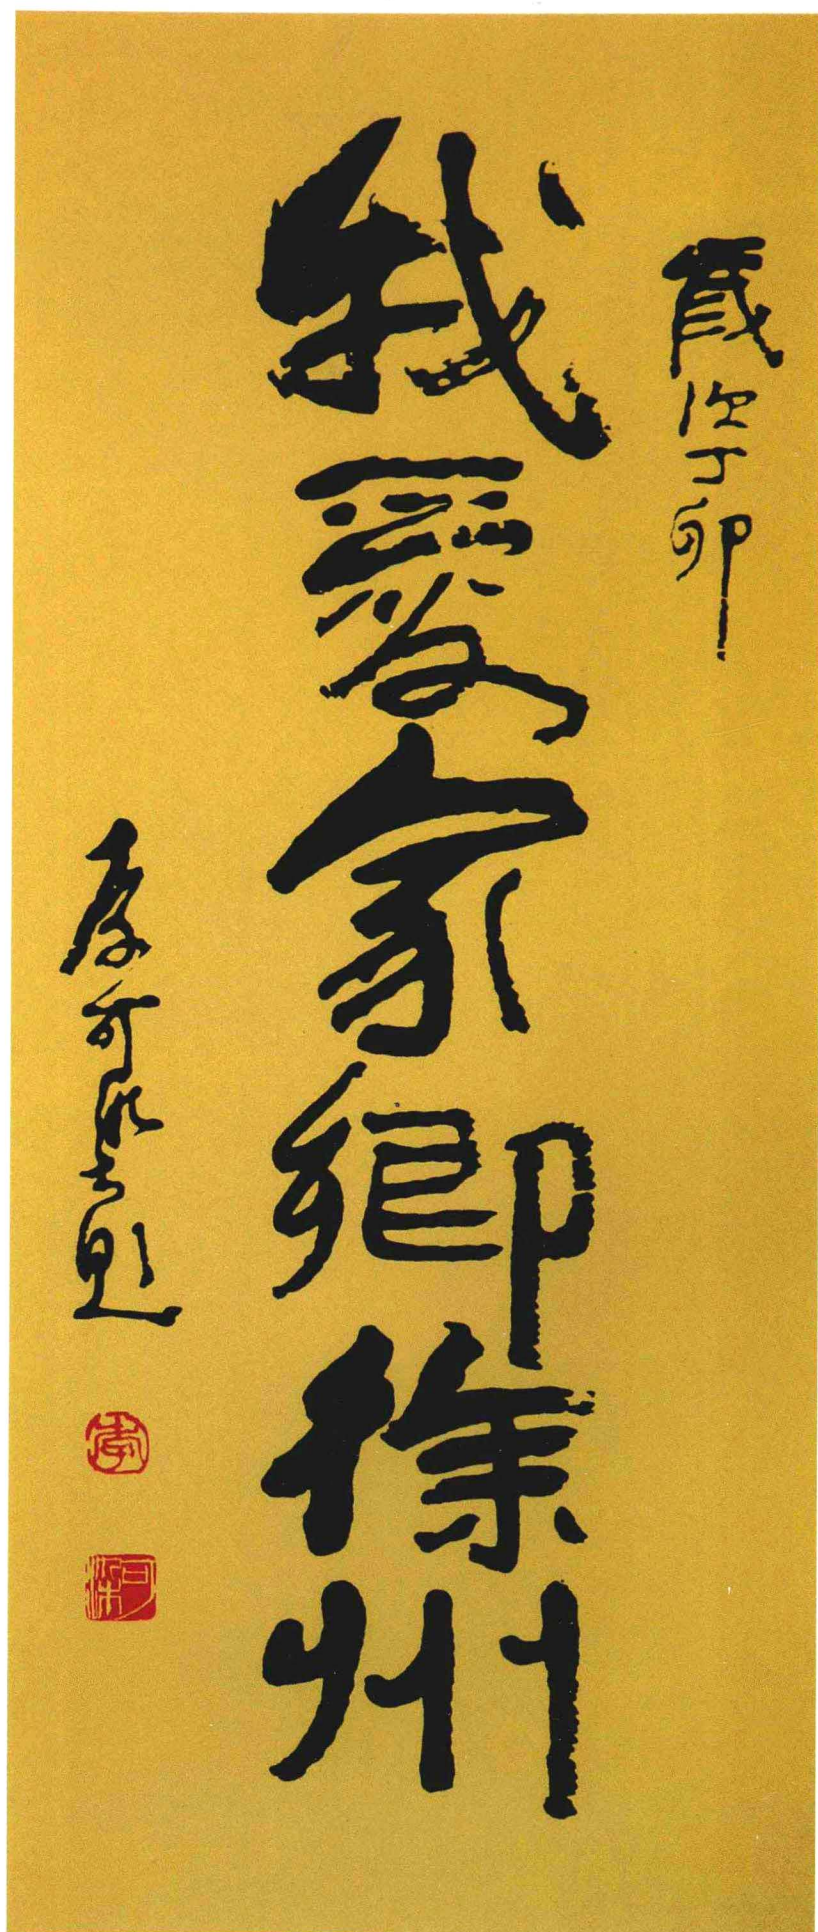 歲次丁卯
我愛家鄉徐州
李可染書題
李
可染